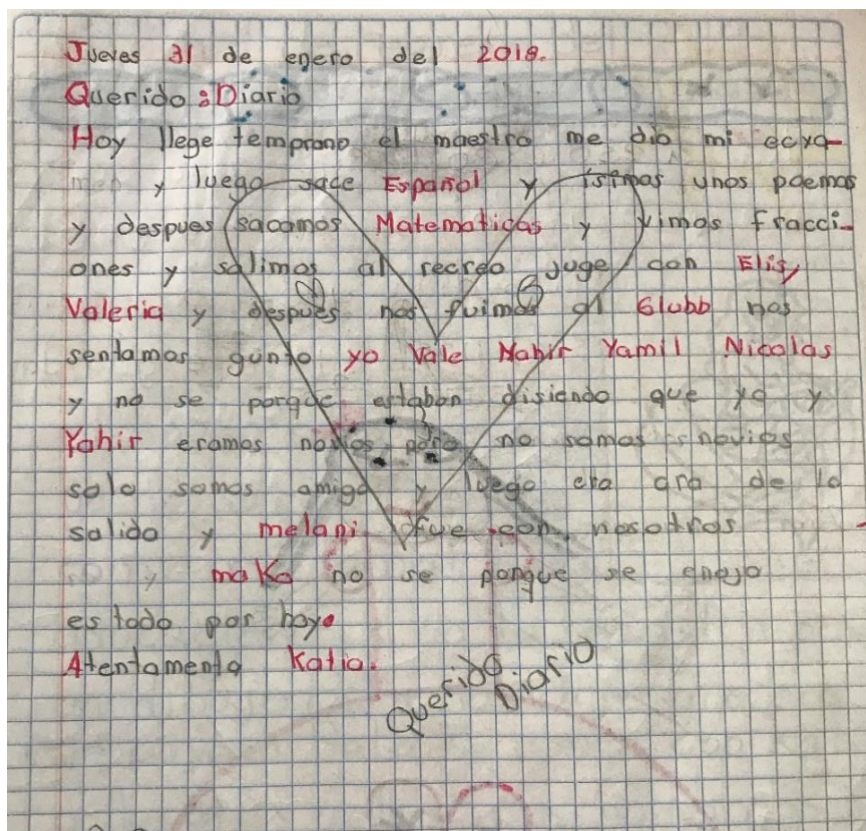 Jueves 31 de enero del 2018.
Querido : Diario
Hoy llege temprano el maestro me dio mi ecxa-
men y luego sace Español y isimos unos poemas
y despues sacamos Matematicas y vimos fracci-
ones y salimos al recreo juge con Elis,
Valeria y después nos fuimos al Glubb nos
sentamos gunto yo Vale Nahir Yamil Nicolas
y no se porque estaban disiendo que yo y
Yahir eramos novios pero no somos novios
solo somos amigo y luego era ora de la
salido y melani fue con nosotros
y maKo no se porque se enejo
es todo por hoy.
Atentamenta Katia.
Querido
Diario